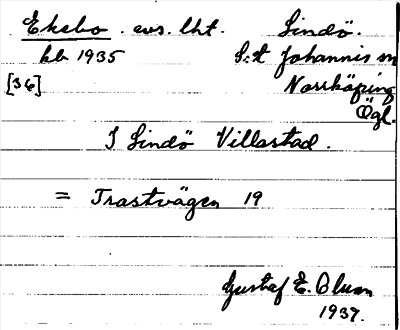 Ekebo . avs. lht. Lindö.
kb 1935 S:t Johannis sn
[36] Norrköping
Ögl.
I Lindö Villastad.
= Trastvägen 19
Gustaf E. Olsson
1937.